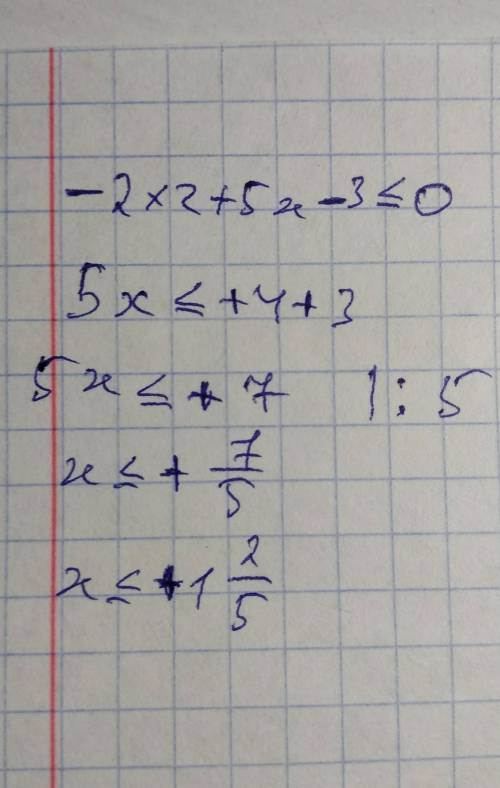 -2×2+5x-3≤0
5x≤+4+3
5x≤+7 |:5
x≤+7/5
x≤+1 2/5